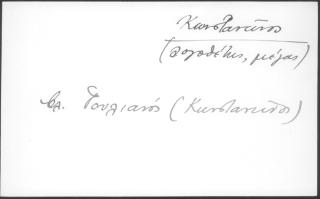 Κωνσταντῖνος
(λογοθέτης, μέγας)
βλ. Γουλιανός (Κωνσταντῖνος)